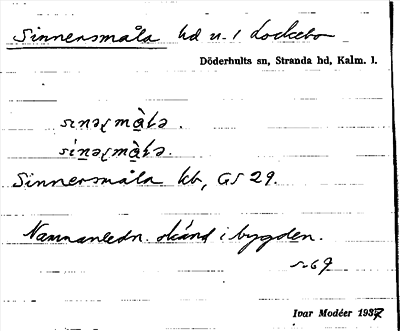 Sinnersmåla hd u. 1 Lockebo
Döderhults sn, Stranda hd, Kalm. l.
Sinnersmåla kb, GS 29.
Namnanledn. okänd i bygden.
s. 69
Ivar Modéer 1937